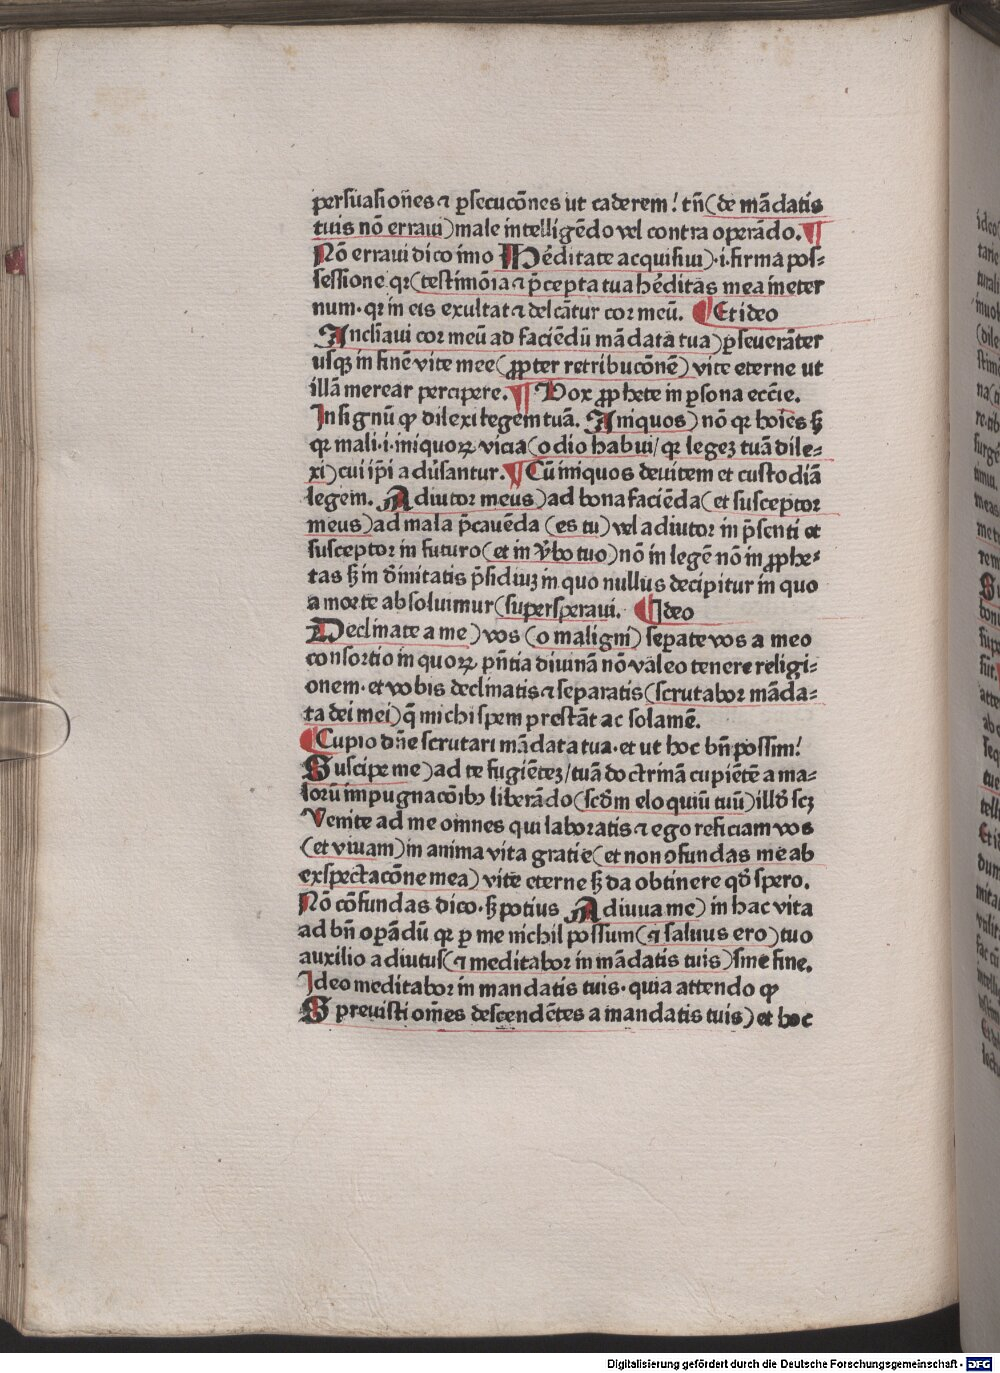 persuasiões ⁊ ꝑsecucōnes ut caderem! tñ (de mādatis
tuis nō erraui) male intelligēdo vel contra operādo. ¶
Nō erraui dico imo Hēditate acquisiui) ·i. firma pos⸗
sessione qr (testimōia ⁊ p̄cepta tua hēditas mea in eter
num· qr in eis exultat ⁊ delcātur cor meū. ¶ Et ideo
Inclīaui cor meū ad faciēdū mādata tua) ꝑseuerāter
usqꝫ in finē vite mee (ꝓpter retribucōnē) vite eterne ut
illā merear percipere. ¶ Vox ꝓphete in ꝑsona eccīe.
In signū ꝙ dilexi legem tuā. Iniquos) nō qr hoīes sꝫ
qr mali ·i· iniquoꝝ vicia (odio habui / qr legeꝫ tuā dile⸗
xi) cui ip̄i aduersantur. ¶ Cū iniquos deuitem et custodiā
legem. Adiutor meus) ad bona faciēda (et susceptor
meus) ad mala p̄cauēda (es tu) vel adiutor in p̄senti et
susceptor in futuro (et in v̄bo tuo) nō in legē nō in ꝓphe⸗
tas sꝫ in diuinitatis p̄sidiuꝫ in quo nullus decipitur in quo
a morte absoluimur (supersperaui. ¶ Ideo
Declinate a me) vos (o maligni) sepate vos a meo
consortio in quoꝝ pn̄tia diuinā nō valeo tenere religi⸗
onem· et vobis declinatis ⁊ separatis (scrutabor māda⸗
ta dei mei) q̄ michi spem prestāt ac solamē.
¶ Cupio dn̄e scrutari mādata tua· et ut hoc bn̄ possim!
Suscipe me) ad te fugiēteꝫ / tuā doctrinā cupiētē a ma⸗
lorū impugnacōibꝫ liberādo (scdm eloquiū tuū) illd̄ scꝫ
Venite ad me omnes qui laboratis ⁊ ego reficiam vos
(et viuam) in anima vita gratie (et non ɔfundas me ab
exspectacōne mea) vite eterne sꝫ da obtinere qd̄ spero.
Nō cōfundas dico· sꝫ potius Adiuua me) in hac vita
ad bn̄ opādū qr ꝑ me nichil possum (⁊ saluus ero) tuo
auxilio adiutus (⁊ meditabor in mādatis tuis) sine fine.
Ideo meditabor in mandatis tuis· quia attendo ꝙ
Spreuisti om̄es descendētes a mandatis tuis) et hoc
Digitalisierung gefördert durch die Deutsche Forschungsgemeinschaft - DFG